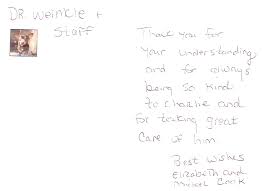 DR. Weinkle +
Staff
Thank you for
your understanding
and for always
being so kind
to charlie and
for taking great
care of him
Best Wishes
Elizabeth and
Michael Cook